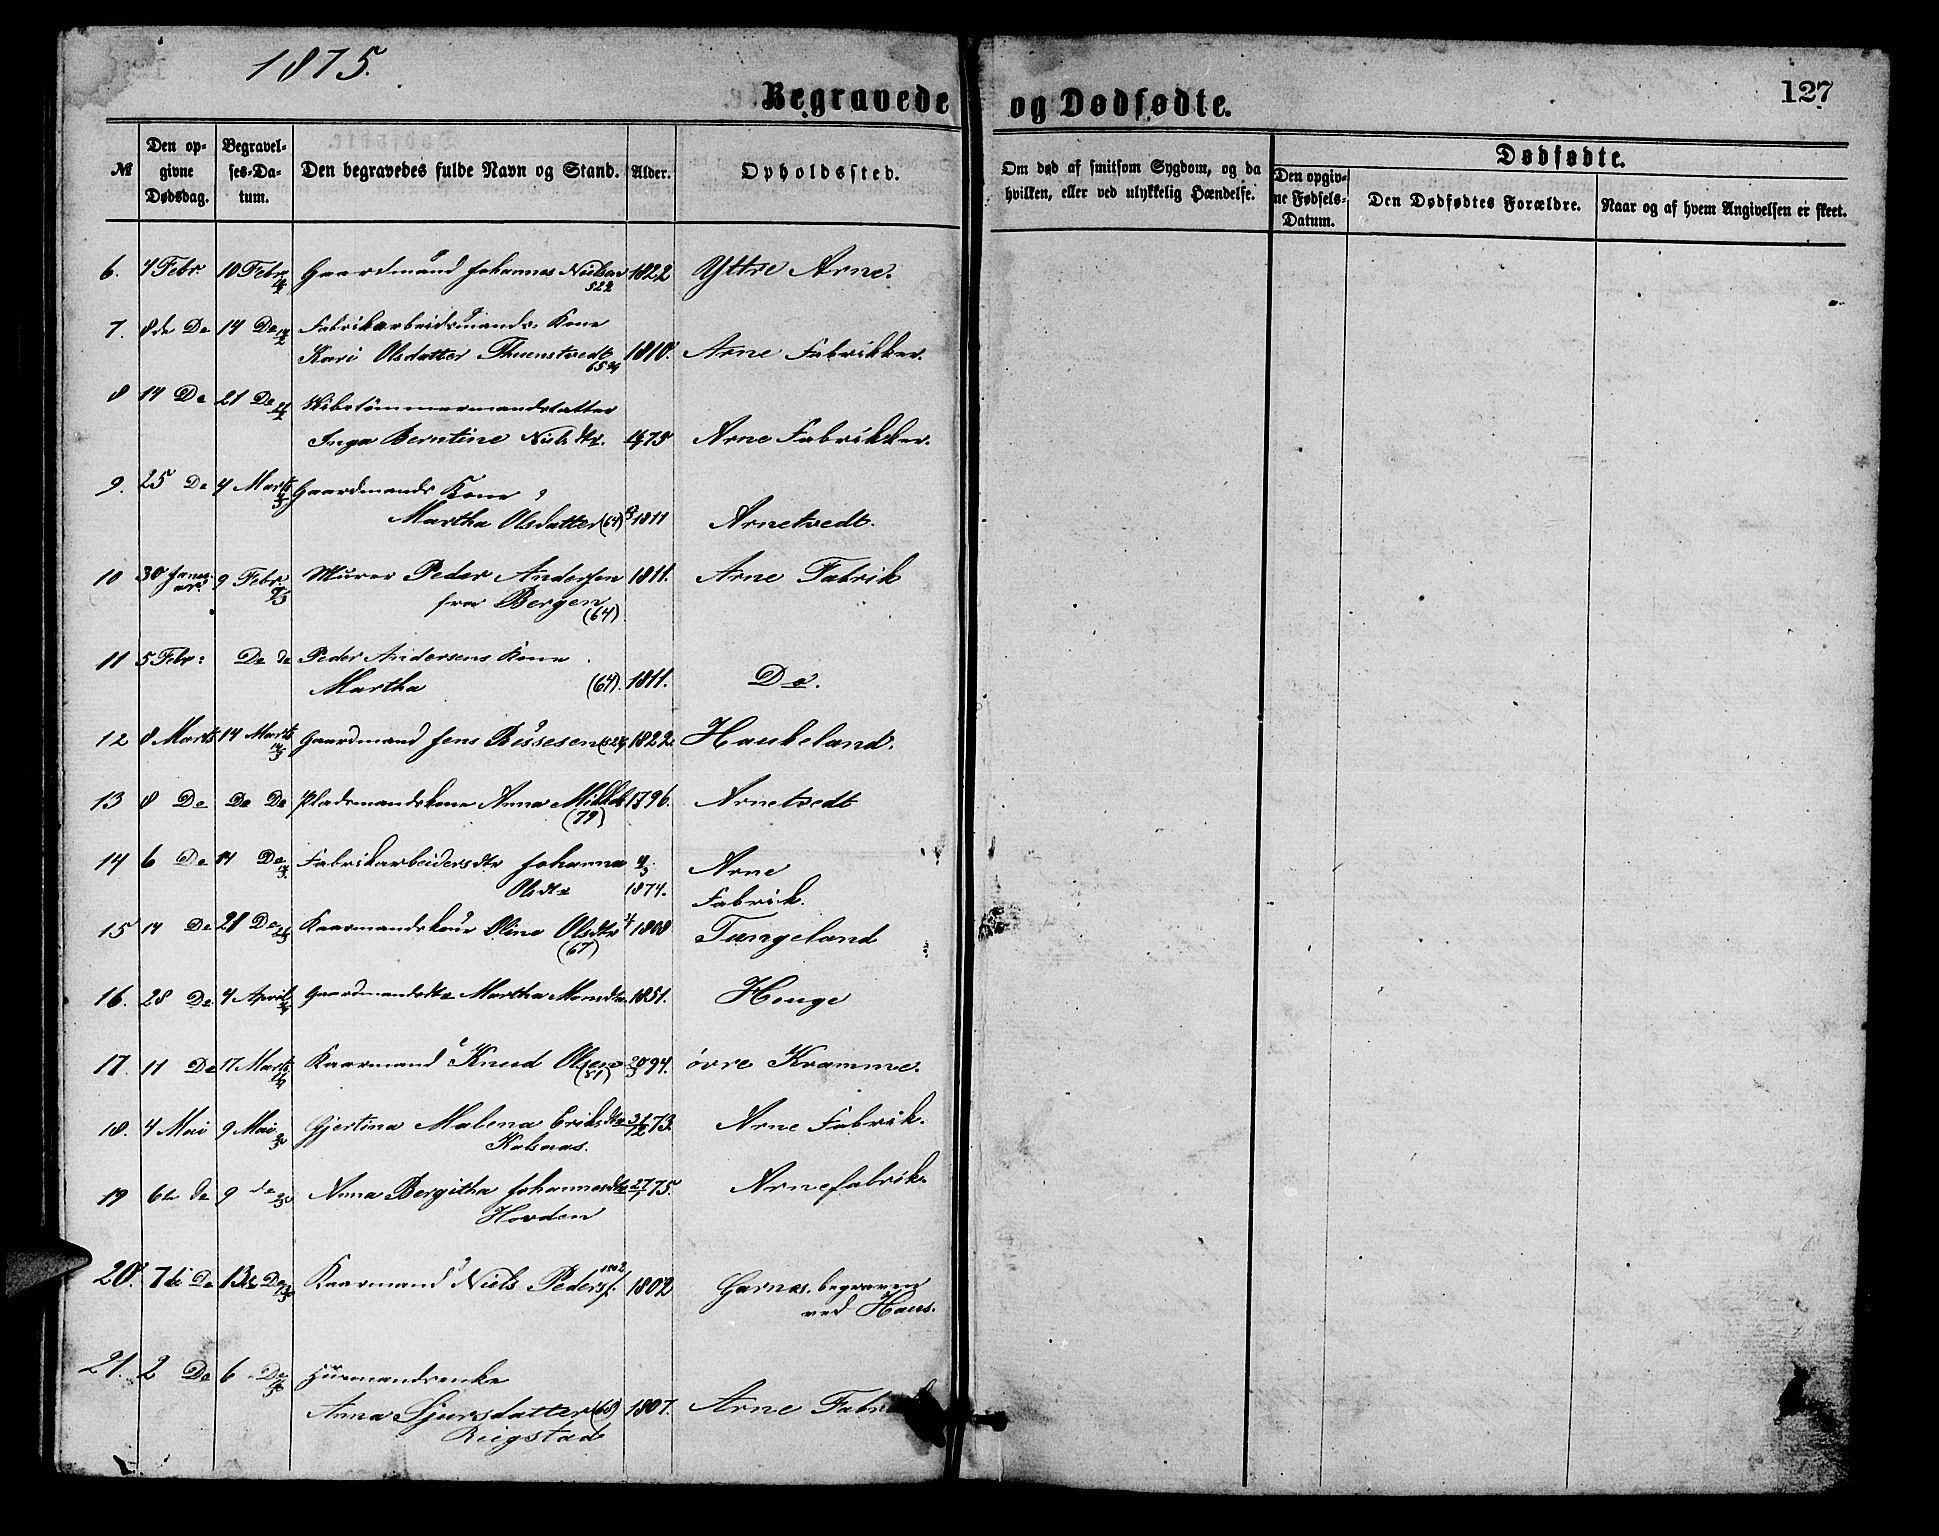 1875.
127
Begravede og Dødfødte.
№ Den opgivne Dødsdag. Begravelses-Datum. Den begravedes fulde Navn og Stand. Alder. Opholdssted. Om død af smitsom Sygdom, og da hvilken, eller ved ulykkelig Hændelse.
Dødfødte.
Den opgivne Fødsels-Datum. Den Dødfødtes Forældre. Naar og af hvem Angivelsen er skeet.
6. 4 Febr 10 Febr Gaardmand Johannes Nielsen 1822 Yttre Arne.
52
7. 8de Do 14 Do Fabrikarbeidsmands Kone
Kari Olsdatter 1810. Arne Fabrikker.
65
8 14 Do 21 Do Skibstømmermandsdatter
Inga Berntine Nielsdtr. 75 Arne Fabrikker.
9. 25 Do 4 Marts Gaardmands Kone
Martha Olsdatter (64) 1811 Arnetvedt.
10 30 Januar 9 Febr. Murer Peder Andersen 1811. Arne Fabrik
fra Bergen
(64)
11 5 Febr: Do do Peder Andersens Kone
Martha (64). 1811. Do.
12 8 Marts 14 Marts Gaardmand Jens 1822 Haukeland.
13 8 Do Do Do Pladsmandskone Anna Mikkels 1796. Arnetvedt
(79)
14 6 Do 14 Do Fabrikarbeidersdtr Johanna Arne
Olsdtr 1874. Fabrik.
15 14 Do 21 Do Kaarmandskone Oline Olsdtr 1808 Tungeland
(67)
16. 28 Do 4 April Gaardmandsdtr Martha Monsdtr 1851. Hauge
17. 11 Do 17 Marts Kaarmand Knud Olsen 94. øvre Kramme.
(81)
18. 4 Mai 9 Mai Gjertina Malena Eriksdtr 73. Arne Fabrik.
Kalsaas.
19 6te do 9 do Anna Bergitha Johannesdtr 27/1 75. Arnefabrik.
Hovden
20. 7de Do 13de Do Kaarmand Niels Peders. 1802 Garnes. begraven
ved Haus.
21. 2 Do 6 Do Huusmandsenke
Anna Sjursdatter (68) 1807. Arne Fabrik
Reigstad